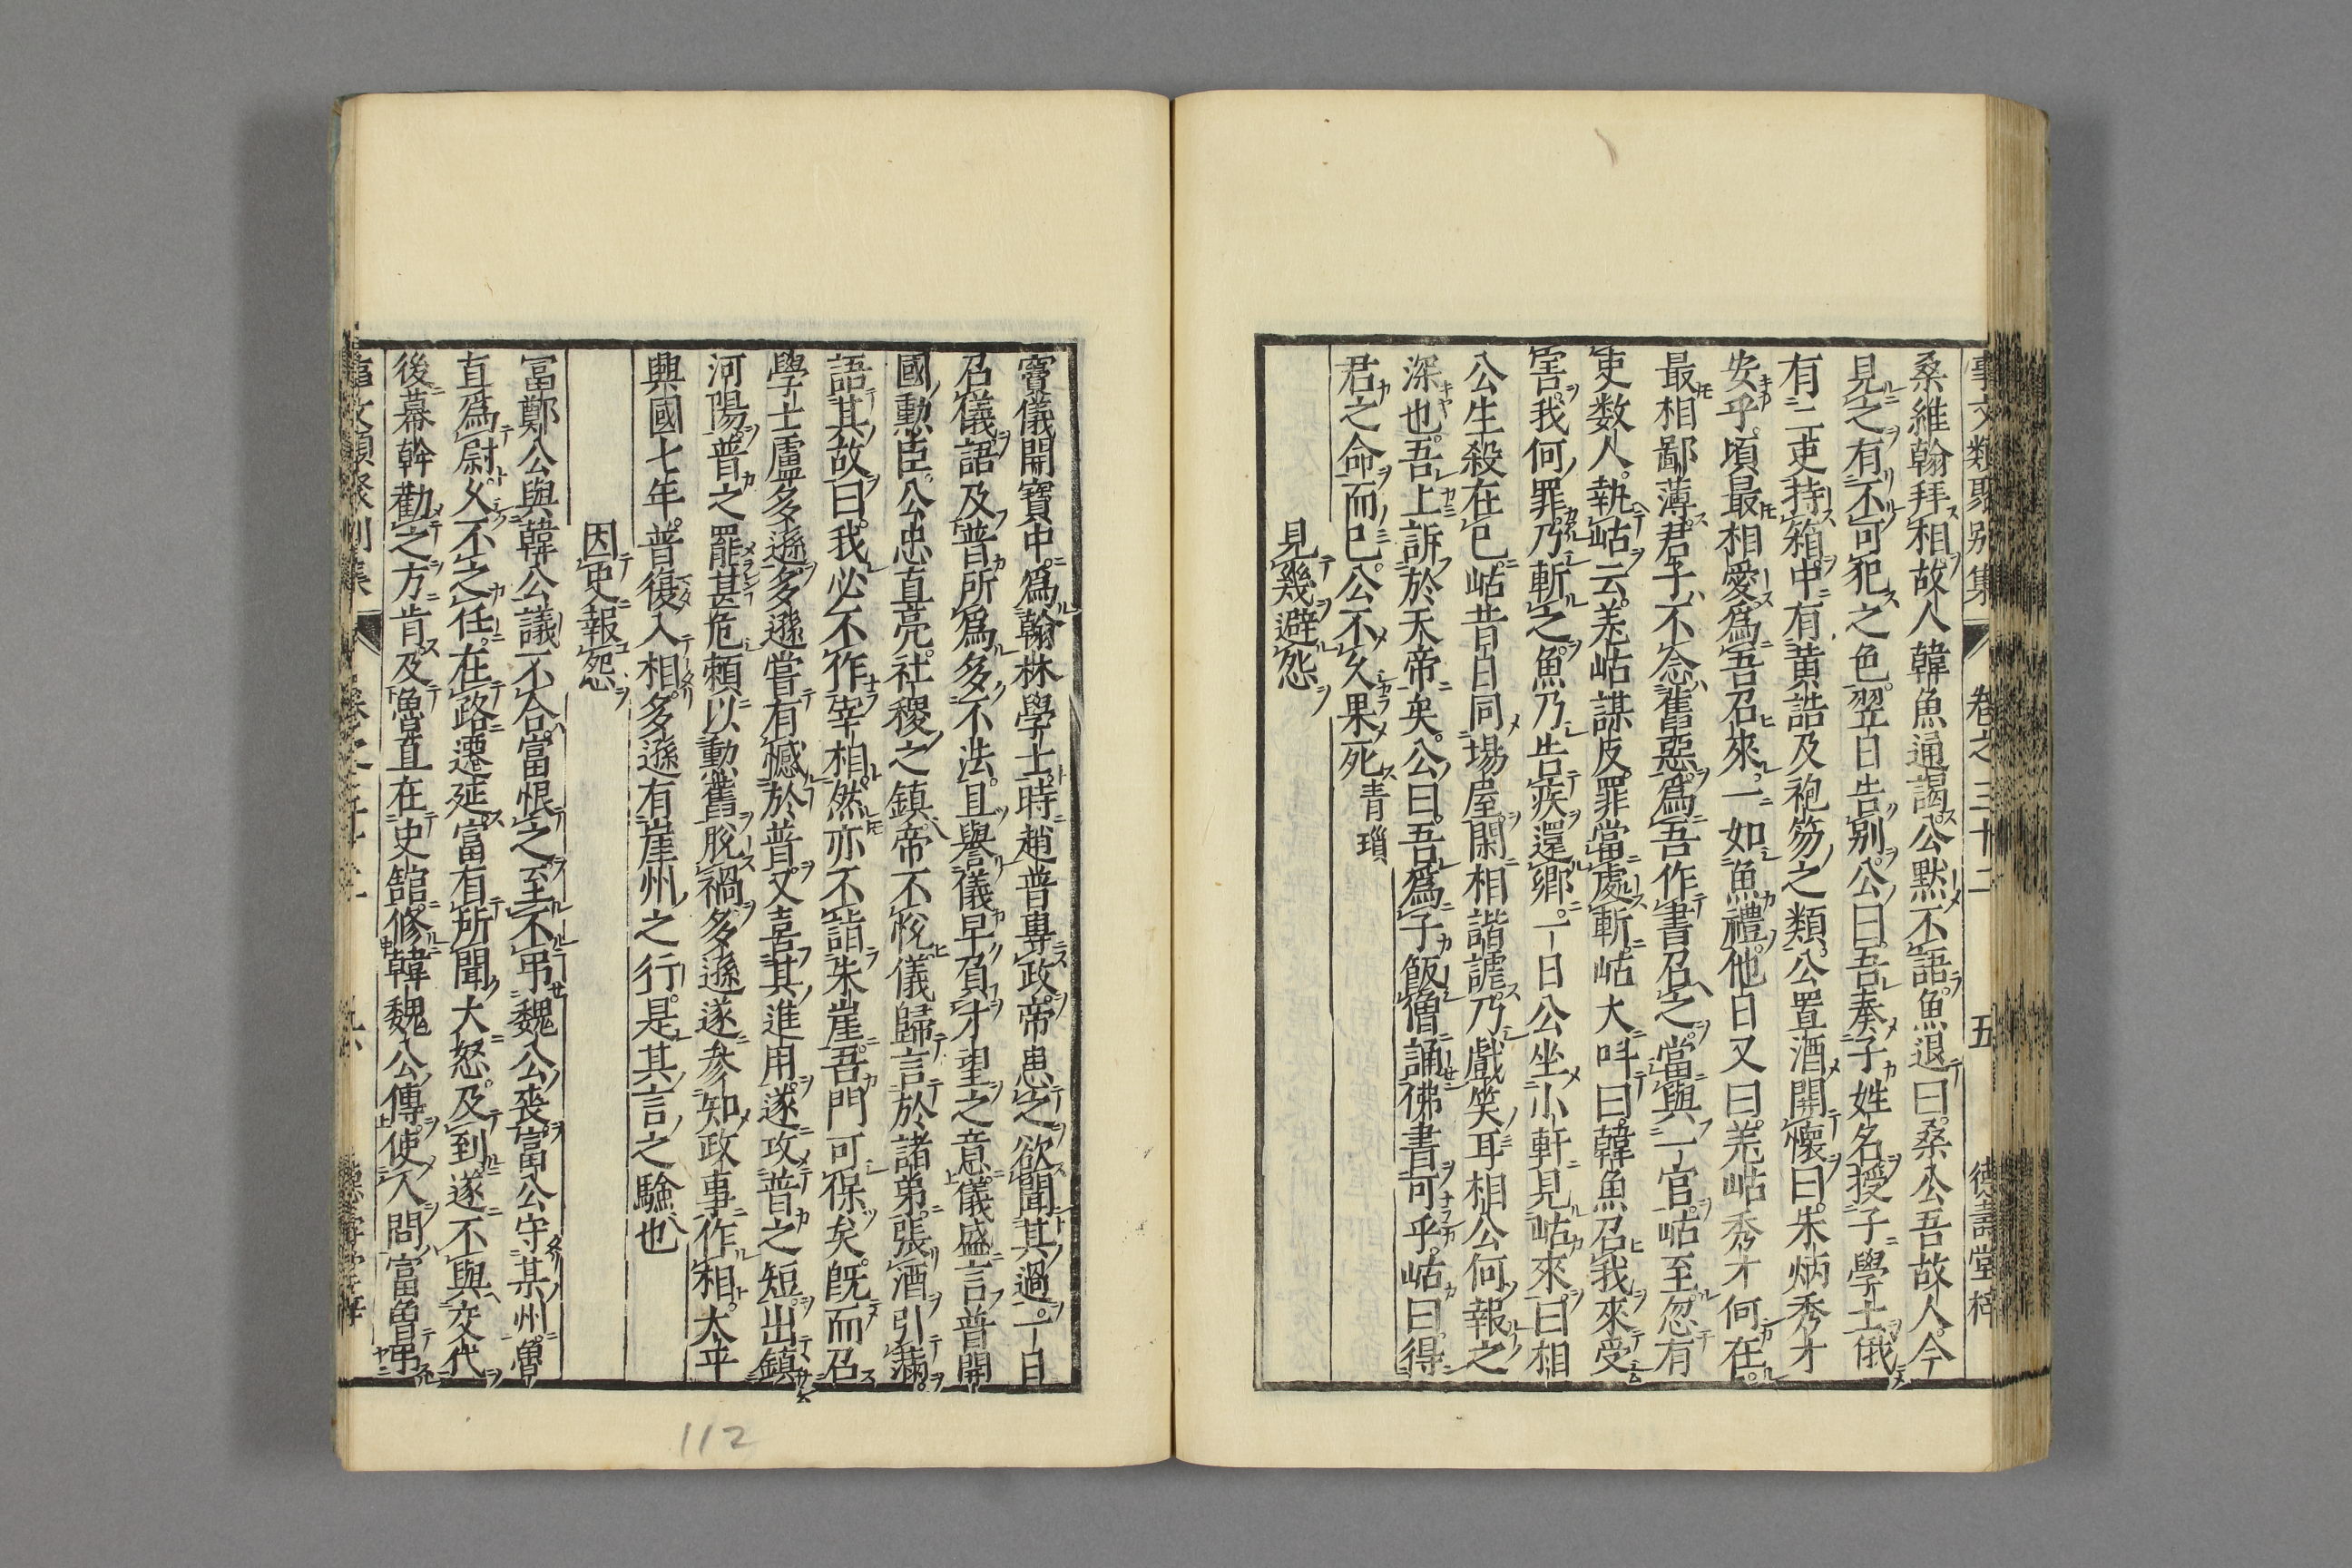 事文類聚别集 卷之三十二 五 德壽堂梓
桑維翰拜相故人韓魚通謁公默不語魚退曰桑公吾故人今
見之有不可犯之色翌日告别公曰吾奏子姓名授子學士俄
有二吏持箱中有黄誥及袍笏之類公置酒開懷曰朱炳秀才
安乎頃最相愛爲吾召來一如魚禮他日又曰羌岵秀才何在
最相鄙薄君子不念舊惡爲吾作書召之當與一官岵至忽有
吏数人執岵云羌岵謀反罪當處斬岵大呌曰韓魚召我來受
害我何罪乃斬之魚乃告疾還鄉一日公坐小軒見岵來曰相
公生殺在已岵昔日同場屋閑相諧謔乃戲笑耳相公何報之
深也吾上訴於天帝矣公曰吾爲子飯僧誦佛書可乎岵曰得
君之命而已公不久果死青瑣
見幾避怨
竇儀開寶中爲翰林學士時趙普專政帝患之欲聞其過一日
召儀語及普所爲多不法且譽儀早負才望之意儀盛言普開
國勲臣公忠直亮社稷之鎮帝不悅儀歸言於諸弟張酒引滿
語其故曰我必不作宰相然亦不詣朱崖吾門可保矣既而召
學士盧多遜多遜嘗有憾於普又喜其進用遂攻普之短出鎮
河陽普之罷甚危賴以勲舊脫禍多遜遂参知政事作相太平
興國七年普復入相多遜有崖州之行是其言之驗也
因史報怨
富鄭公與韓公議不合富恨之至不弔魏公喪富公守某州魯
直爲尉久不之任在路遷延富有所聞大怒及到遂不與交代
後幕幹勸之方肯及魯直在史舘修韓魏公傳使人問富曾弔
112